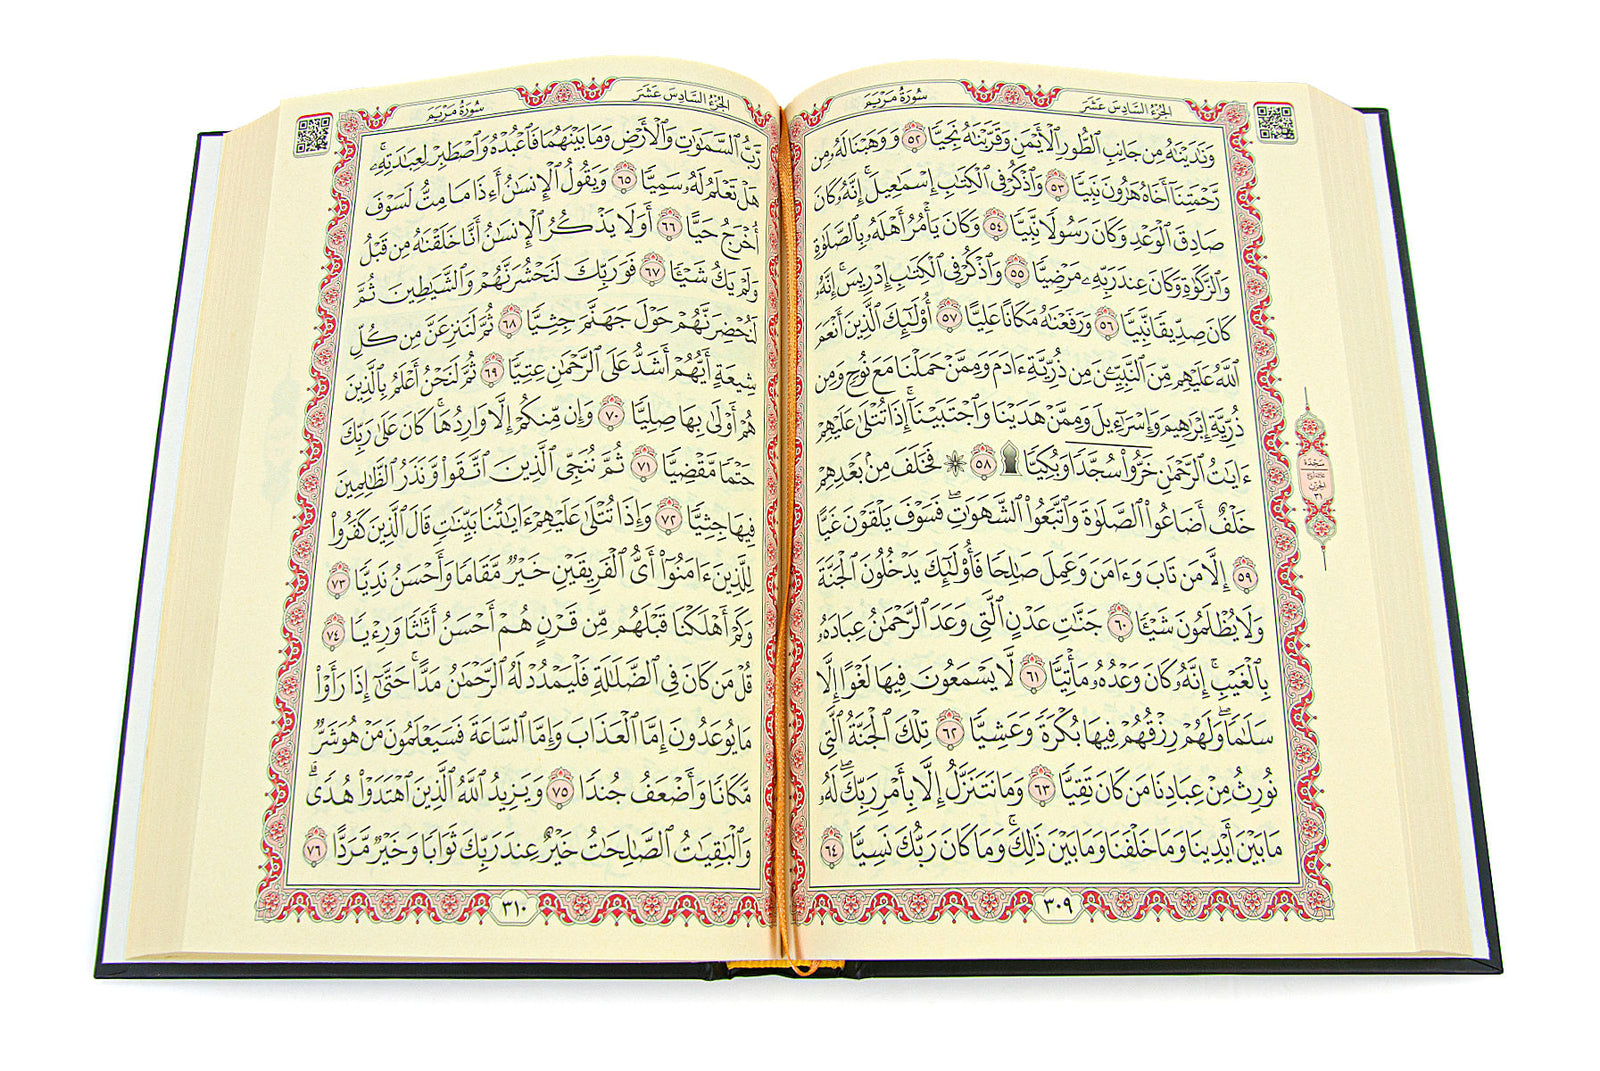 الجُزْءُ السَّادِسَ عَشَرَ
سُورَةُ مَرْيَمَ
وَنَٰدَيْنَٰهُ مِن جَانِبِ ٱلطُّورِ ٱلْأَيْمَنِ وَقَرَّبْنَٰهُ نَجِيًّا ٥٢ وَوَهَبْنَا لَهُۥ مِن
رَّحْمَتِنَآ أَخَاهُ هَٰرُونَ نَبِيًّا ٥٣ وَٱذْكُرْ فِى ٱلْكِتَٰبِ إِسْمَٰعِيلَ ۚ إِنَّهُۥ كَانَ
صَادِقَ ٱلْوَعْدِ وَكَانَ رَسُولًا نَّبِيًّا ٥٤ وَكَانَ يَأْمُرُ أَهْلَهُۥ بِٱلصَّلَوٰةِ
وَٱلزَّكَوٰةِ وَكَانَ عِندَ رَبِّهِۦ مَرْضِيًّا ٥٥ وَٱذْكُرْ فِى ٱلْكِتَٰبِ إِدْرِيسَ ۚ إِنَّهُۥ
كَانَ صِدِّيقًا نَّبِيًّا ٥٦ وَرَفَعْنَٰهُ مَكَانًا عَلِيًّا ٥٧ أُو۟لَٰٓئِكَ ٱلَّذِينَ أَنْعَمَ
ٱللَّهُ عَلَيْهِم مِّنَ ٱلنَّبِيِّـۧنَ مِن ذُرِّيَّةِ ءَادَمَ وَمِمَّنْ حَمَلْنَا مَعَ نُوحٍ وَمِن
ذُرِّيَّةِ إِبْرَٰهِيمَ وَإِسْرَٰٓءِيلَ وَمِمَّنْ هَدَيْنَا وَٱجْتَبَيْنَآ ۚ إِذَا تُتْلَىٰ عَلَيْهِمْ
ءَايَٰتُ ٱلرَّحْمَٰنِ خَرُّوا۟ سُجَّدًا وَبُكِيًّا ۩ ٥٨ ۞ فَخَلَفَ مِنۢ بَعْدِهِمْ
خَلْفٌ أَضَاعُوا۟ ٱلصَّلَوٰةَ وَٱتَّبَعُوا۟ ٱلشَّهَوَٰتِ ۖ فَسَوْفَ يَلْقَوْنَ غَيًّا
٥٩ إِلَّا مَن تَابَ وَءَامَنَ وَعَمِلَ صَٰلِحًا فَأُو۟لَٰٓئِكَ يَدْخُلُونَ ٱلْجَنَّةَ
وَلَا يُظْلَمُونَ شَيْـًٔا ٦٠ جَنَّٰتِ عَدْنٍ ٱلَّتِى وَعَدَ ٱلرَّحْمَٰنُ عِبَادَهُۥ
بِٱلْغَيْبِ ۚ إِنَّهُۥ كَانَ وَعْدُهُۥ مَأْتِيًّا ٦١ لَّا يَسْمَعُونَ فِيهَا لَغْوًا إِلَّا
سَلَٰمًا ۖ وَلَهُمْ رِزْقُهُمْ فِيهَا بُكْرَةً وَعَشِيًّا ٦٢ تِلْكَ ٱلْجَنَّةُ ٱلَّتِى
نُورِثُ مِنْ عِبَادِنَا مَن كَانَ تَقِيًّا ٦٣ وَمَا نَتَنَزَّلُ إِلَّا بِأَمْرِ رَبِّكَ ۖ لَهُۥ
مَا بَيْنَ أَيْدِينَا وَمَا خَلْفَنَا وَمَا بَيْنَ ذَٰلِكَ ۚ وَمَا كَانَ رَبُّكَ نَسِيًّا ٦٤
٣٠٩
سَجْدَة
الحِزْب
٣١
الجُزْءُ السَّادِسَ عَشَرَ
سُورَةُ مَرْيَمَ
رَّبُّ ٱلسَّمَٰوَٰتِ وَٱلْأَرْضِ وَمَا بَيْنَهُمَا فَٱعْبُدْهُ وَٱصْطَبِرْ لِعِبَٰدَتِهِۦ ۚ
هَلْ تَعْلَمُ لَهُۥ سَمِيًّا ٦٥ وَيَقُولُ ٱلْإِنسَٰنُ أَءِذَا مَا مِتُّ لَسَوْفَ
أُخْرَجُ حَيًّا ٦٦ أَوَلَا يَذْكُرُ ٱلْإِنسَٰنُ أَنَّا خَلَقْنَٰهُ مِن قَبْلُ
وَلَمْ يَكُ شَيْـًٔا ٦٧ فَوَرَبِّكَ لَنَحْشُرَنَّهُمْ وَٱلشَّيَٰطِينَ ثُمَّ
لَنُحْضِرَنَّهُمْ حَوْلَ جَهَنَّمَ جِثِيًّا ٦٨ ثُمَّ لَنَنزِعَنَّ مِن كُلِّ
شِيعَةٍ أَيُّهُمْ أَشَدُّ عَلَى ٱلرَّحْمَٰنِ عِتِيًّا ٦٩ ثُمَّ لَنَحْنُ أَعْلَمُ بِٱلَّذِينَ
هُمْ أَوْلَىٰ بِهَا صِلِيًّا ٧٠ وَإِن مِّنكُمْ إِلَّا وَارِدُهَا ۚ كَانَ عَلَىٰ رَبِّكَ
حَتْمًا مَّقْضِيًّا ٧١ ثُمَّ نُنَجِّى ٱلَّذِينَ ٱتَّقَوا۟ وَّنَذَرُ ٱلظَّٰلِمِينَ
فِيهَا جِثِيًّا ٧٢ وَإِذَا تُتْلَىٰ عَلَيْهِمْ ءَايَٰتُنَا بَيِّنَٰتٍ قَالَ ٱلَّذِينَ كَفَرُوا۟
لِلَّذِينَ ءَامَنُوٓا۟ أَىُّ ٱلْفَرِيقَيْنِ خَيْرٌ مَّقَامًا وَأَحْسَنُ نَدِيًّا ٧٣
وَكَمْ أَهْلَكْنَا قَبْلَهُم مِّن قَرْنٍ هُمْ أَحْسَنُ أَثَٰثًا وَرِءْيًا ٧٤
قُلْ مَن كَانَ فِى ٱلضَّلَٰلَةِ فَلْيَمْدُدْ لَهُ ٱلرَّحْمَٰنُ مَدًّا ۚ حَتَّىٰٓ إِذَا رَأَوْا۟
مَا يُوعَدُونَ إِمَّا ٱلْعَذَابَ وَإِمَّا ٱلسَّاعَةَ فَسَيَعْلَمُونَ مَنْ هُوَ شَرٌّ
مَّكَانًا وَأَضْعَفُ جُندًا ٧٥ وَيَزِيدُ ٱللَّهُ ٱلَّذِينَ ٱهْتَدَوْا۟ هُدًى ۗ
وَٱلْبَٰقِيَٰتُ ٱلصَّٰلِحَٰتُ خَيْرٌ عِندَ رَبِّكَ ثَوَابًا وَخَيْرٌ مَّرَدًّا ٧٦
٣١٠